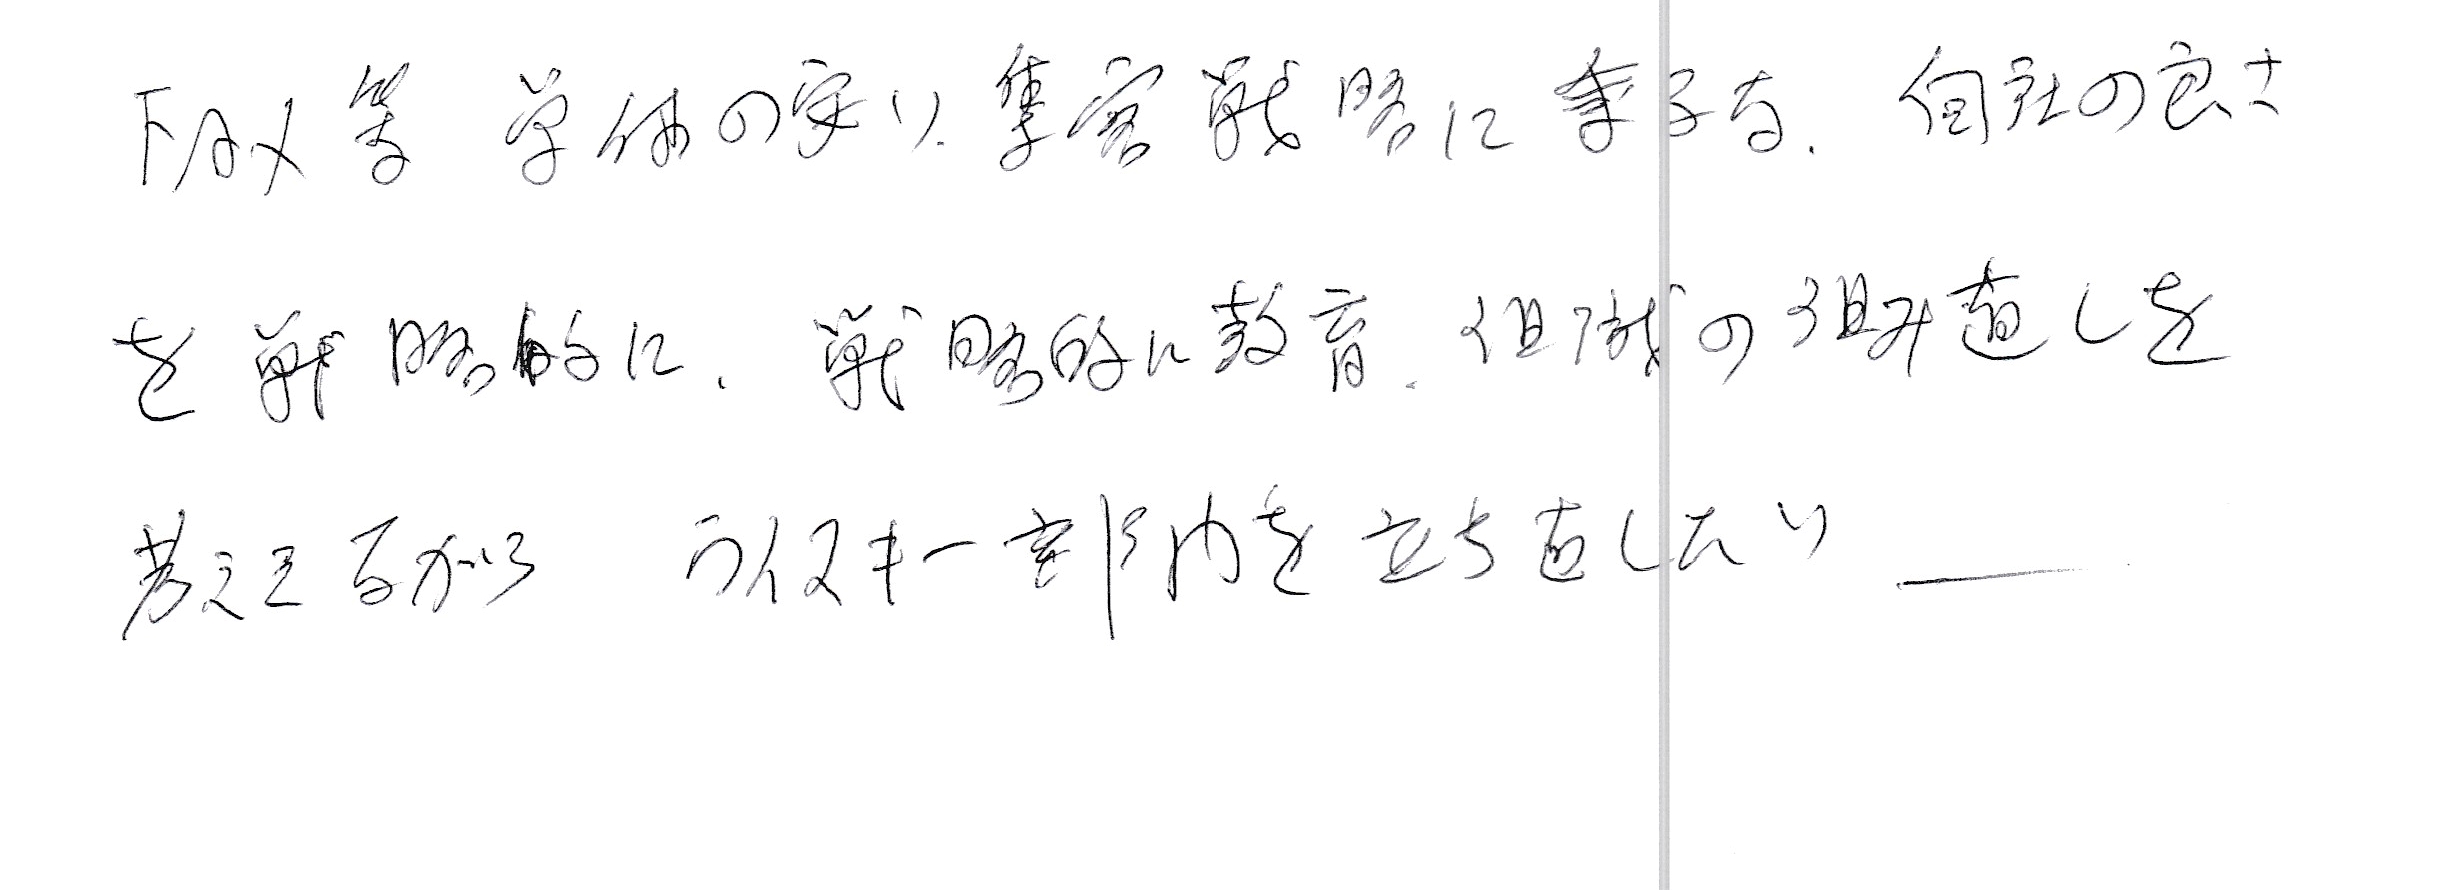 FAX等 単価の安い、集客戦略に乗るな、個社の良さ
を戦略的に、戦略的に教育、組織の組み直しを
考えるが ライスキー部内を立ち直したい